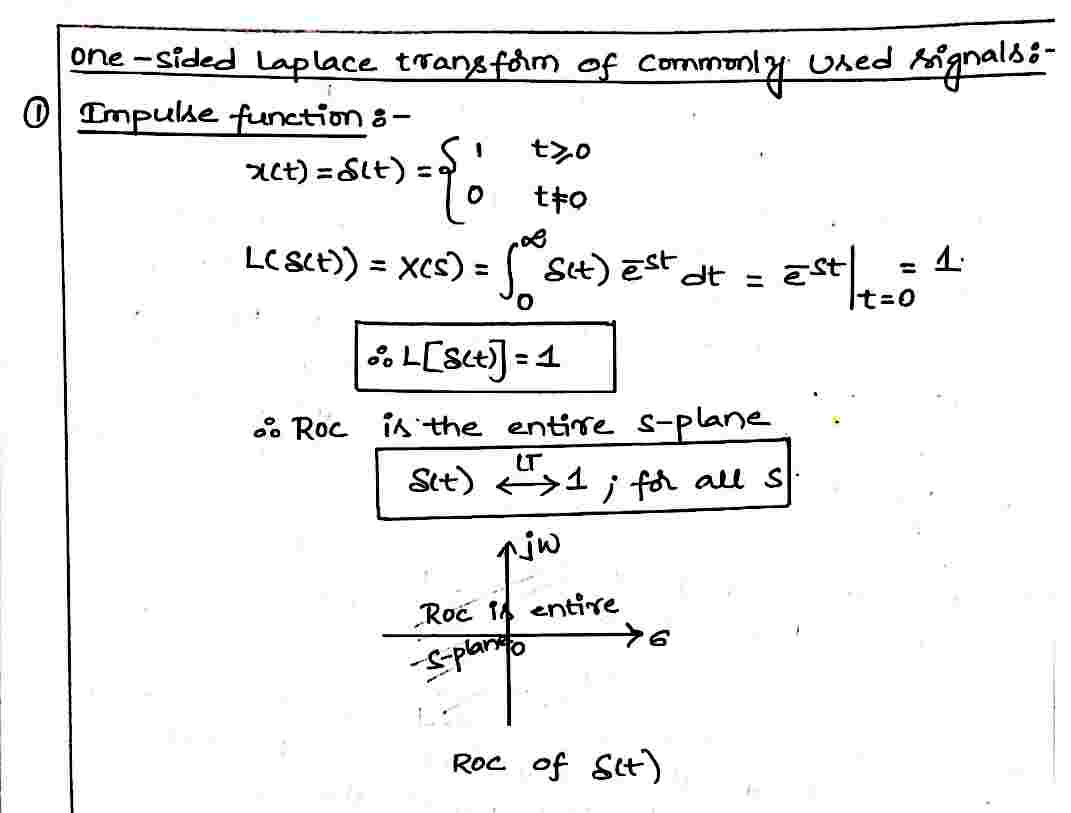 one-sided Laplace transform of commonly used signals:-
① Impulse function :-
x(t) = δ(t) = { 1 t≥0
0 t≠0
L(δ(t)) = X(s) = ∫₀^∞ δ(t) e^-st dt = e^-st |t=0 = 1.
∴ L[δ(t)] = 1
∴ Roc is the entire s-plane
δ(t) ⟷^LT 1 ; for all s.
jw
Roc is entire
σ
s-plane 0
Roc of δ(t)